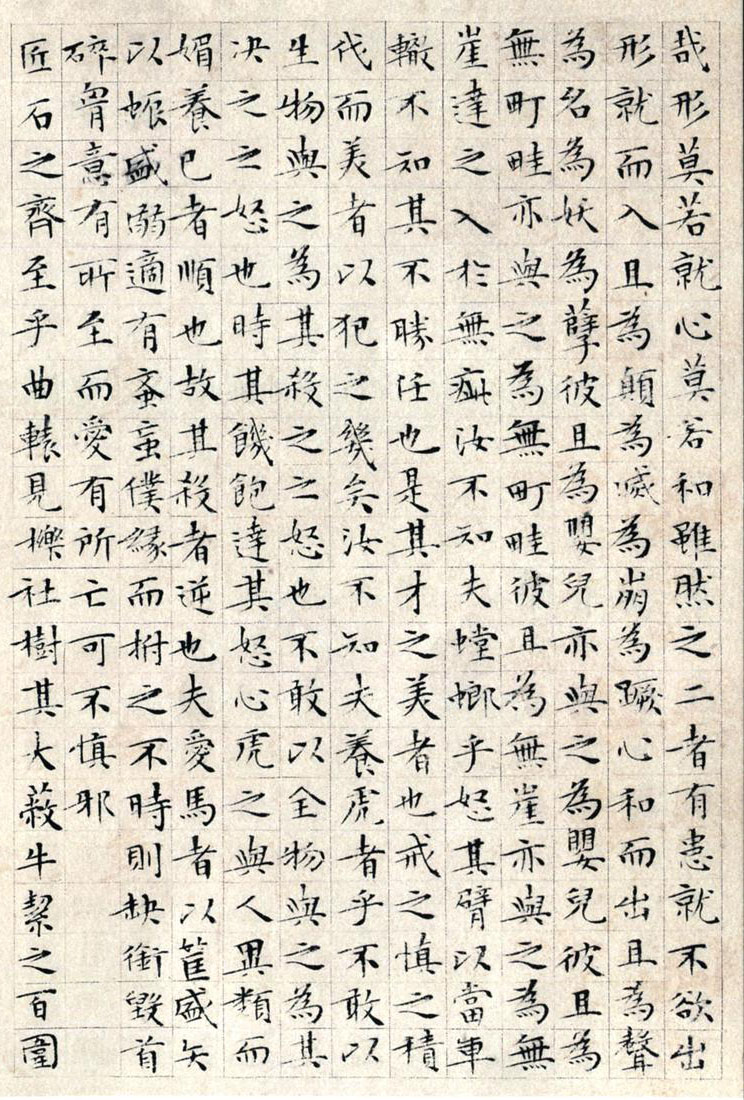 哉形莫若就心莫若和雖然之二者有患就不欲出
形就而入且為顛為滅為崩為蹶心和而出且為聲
為名為妖為孽彼且為嬰兒亦與之為嬰兒彼且為
無町畦亦與之為無町畦彼且為無崖亦與之為無
崖達之入於無疵汝不知夫螳螂乎怒其臂以當車
轍不知其不勝任也是其才之美者也戒之慎之積
伐而美者以犯之幾矣汝不知夫養虎者乎不敢以
生物與之為其殺之之怒也不敢以全物與之為其
决之之怒也時其饑飽達其怒心虎之與人異類而
媚養己者順也故其殺者逆也夫愛馬者以筐盛矢
以蜄盛溺適有蚉䖟僕緣而拊之不時則缺銜毀首
碎胷意有所至而愛有所亡可不慎邪
匠石之齊至乎曲轅見櫟社樹其大蔽牛絜之百圍